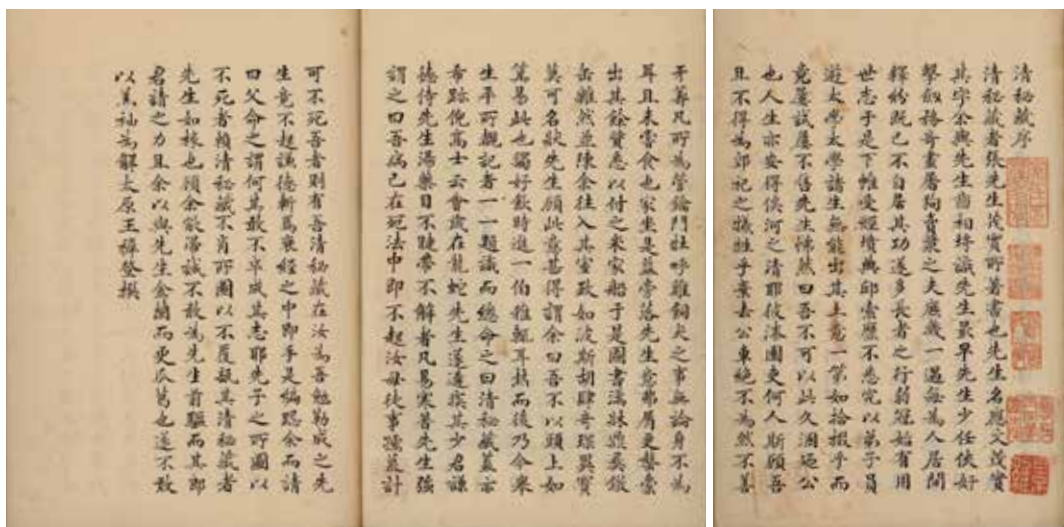 清秘藏序
清秘藏者張先生茂實所著書也先生名應文茂實
其字余與先生齒相埒識先生最早先生少任俠好
擊劍跨奇畫屠狗賣漿之夫應歲一過每為人居間
釋紛既已不自居其功遂多長者之行弱冠始有用
世志于是下帷受經墳典邱索歷不悉究以弟子員
遊太學太學諸生無能出其上意一第如拾掇乎而
竟屢試屢不售先生怫然曰吾不可以此久溷逐公
也人生亦安得俟河之清耶彼漆園吏何人斯願吾
且不得為郊祀之犧牲乎棄去公車絕不為然不善
干蠱凡所為管鑰門牡呼雞飼犬之事無論身不為
耳且未嘗食也家坐是益旁落先生意弗屑更鬻橐
出其餘貲悉以付之米家船于是圖書法牀鼎彝敦
缶雖然並陳余往入其室致如波斯胡肆奇琛異寶
莫可名狀先生顧此意甚得謂余曰吾不以頭上如
篙易此也獨好飲時進一伯雅輒耳熱而後乃今舉
生平所覩記者一一題識而總命之曰清秘藏蓋亦
希踪倪高士云會歲在龍蛇先生遂遘疾其少君謙
德侍先生湯藥目不睫帶不解者凡易寒暑先生強
謂之曰吾病已在死法中即不起汝毋徒事孺慕計
可不死吾者則有吾清秘藏在汝為吾勉勒成之先
生竟不起謙德斬焉衰絰之中即手是編踞余而請
曰父命之謂何其敢不卒成其志耶先子之所圖以
不死者賴清秘藏不肖所圖以不覆瓿其清秘藏者
先生如椽也願余欲滯誠不敢為先生前驅而其郎
君請之力且余以與先生金蘭而更瓜葛也遂不敢
以蕪衲為解太原王穉登撰